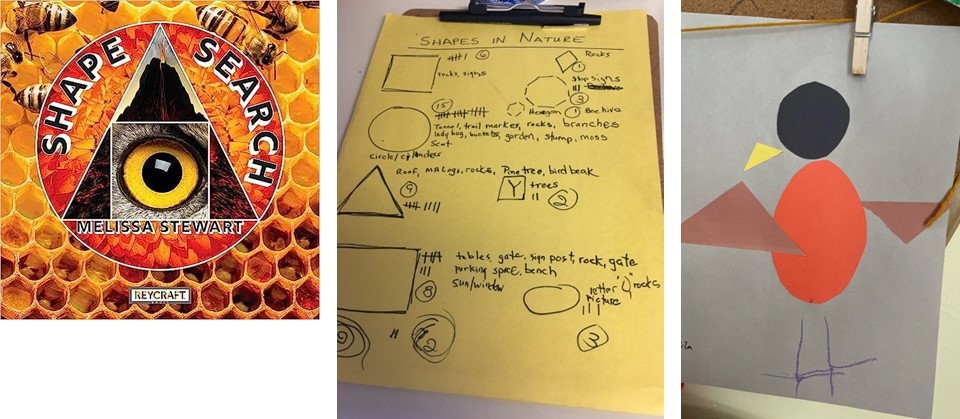 SHAPE SEARCH
MELISSA STEWART
REYCRAFT
SHAPES IN NATURE
6
rocks, signs
Rocks
1
stop signs
3
Hexagon
1 Beehive
15
Tunnel, trail marker, rocks, branches
lady bug, buckets, garden, stump, moss
Scat
Circle/cylinders
Roof, MA Logo, rocks, Pine tree, bird beak
9
Y trees
2
tables, gate, sign post, rock, gate
parking space, bench
sun/window
8
letter
rocks
Picture
3